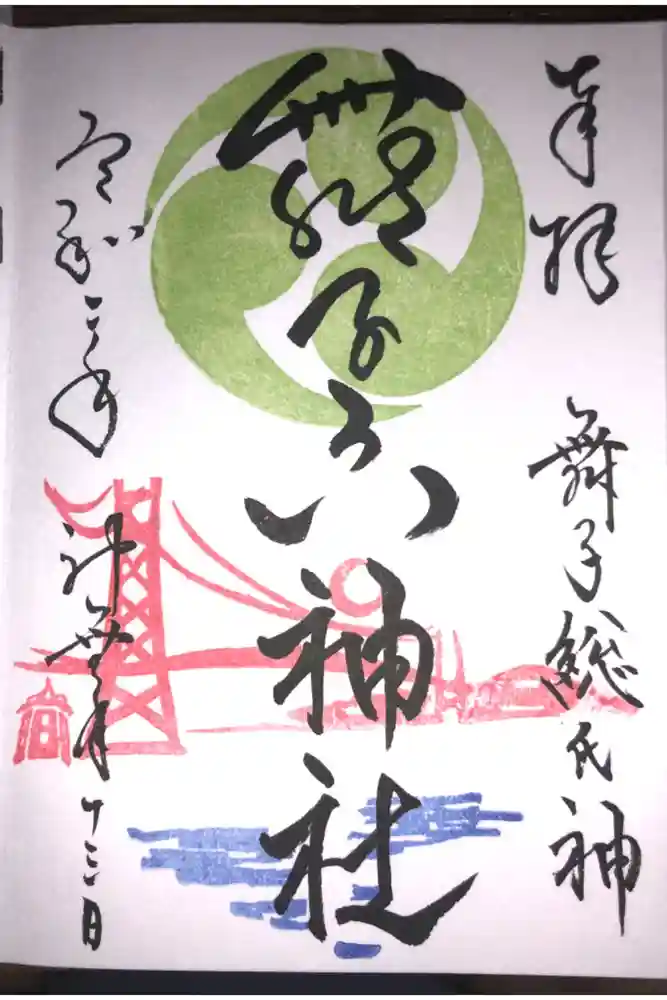 奉拝
舞子総氏神
舞子六神社
令和二年 神無月 十三日